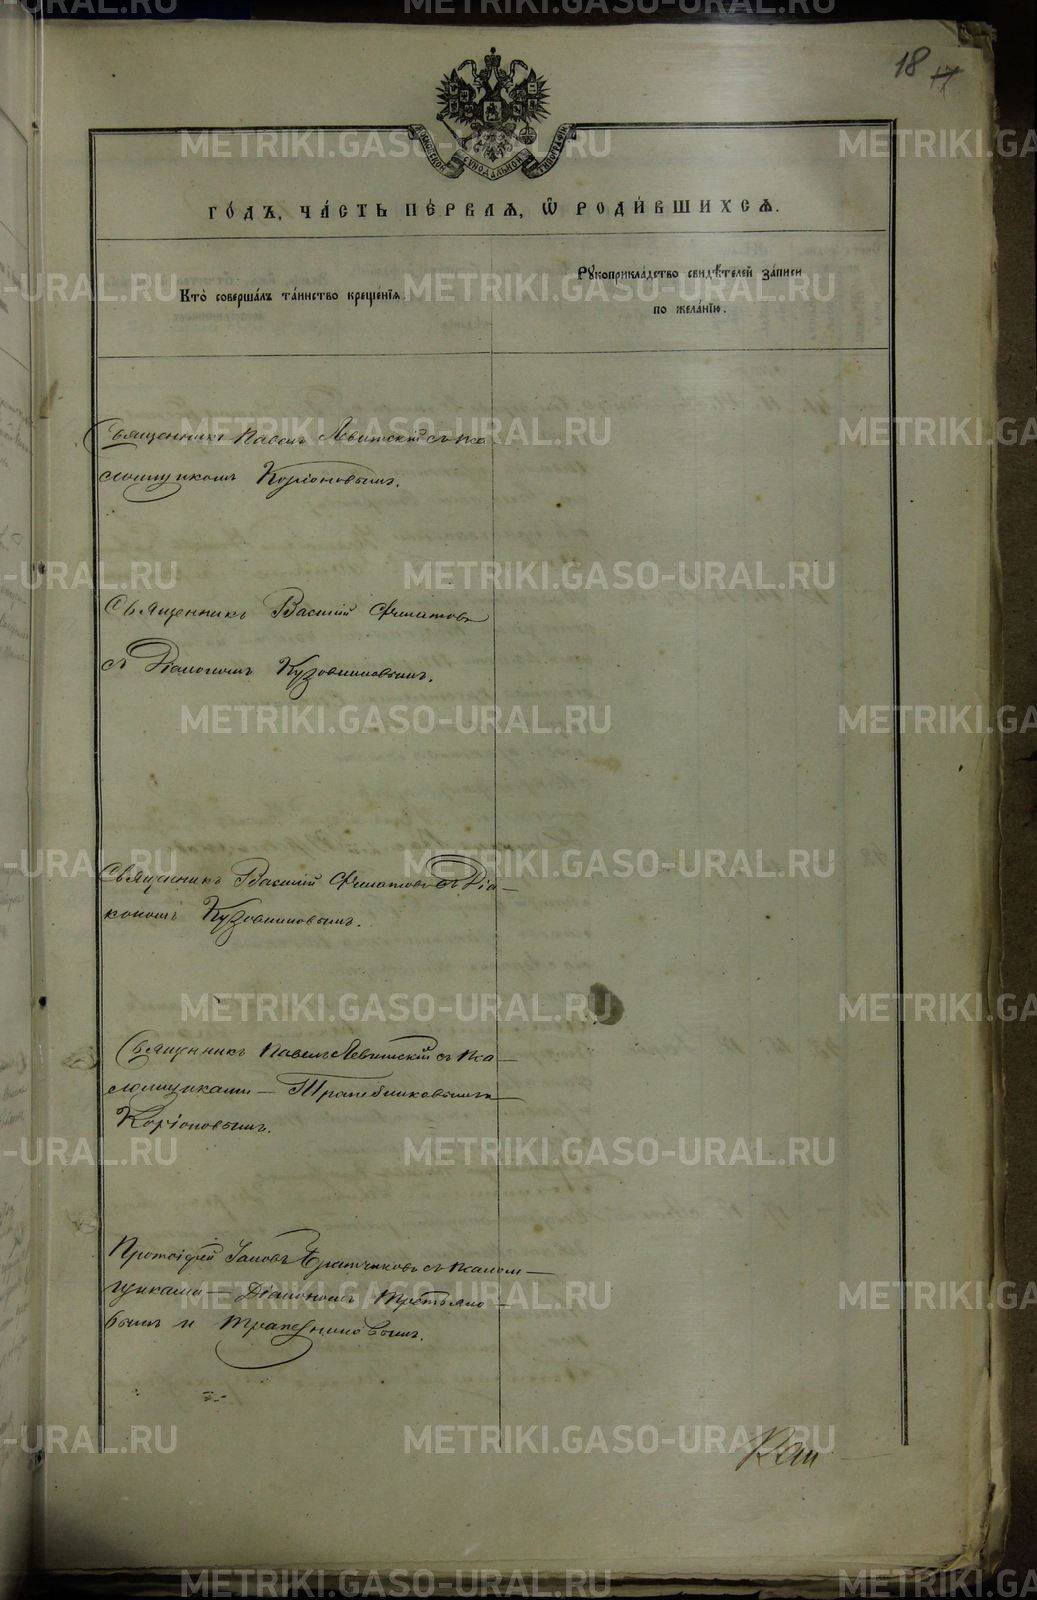 18 17
МОСКОВСКОЙ СѴНОДАЛЬНОЙ ТИПОГРАФІИ
ГО́ДЪ, ЧА́СТЬ ПЕ́РВАЯ, Ѡ҆ РОДИ́ВШИХСЯ.
Кто̀ соверша́лъ та́инство креще́нїѧ.
Рꙋкоприкла́дство свидѣ́телей за́писи
по жела́нїю.
Священникъ Павелъ Левитскій съ пса
ломщикомъ Коріоновымъ.
Священникъ Василій Филатовъ
съ Діакономъ Кузовниковымъ.
Священникъ Василій Филатовъ съ Діа-
кономъ Кузовниковымъ.
Священникъ Павелъ Левитскій съ пса-
ломщиками - Трапезниковымъ и
Коріоновымъ.
Протоіерей Іаковъ съ псалом-
щиками - Діакономъ Третьяко-
вымъ и Трапезниковымъ.
METRIKI.GASO-URAL.RU